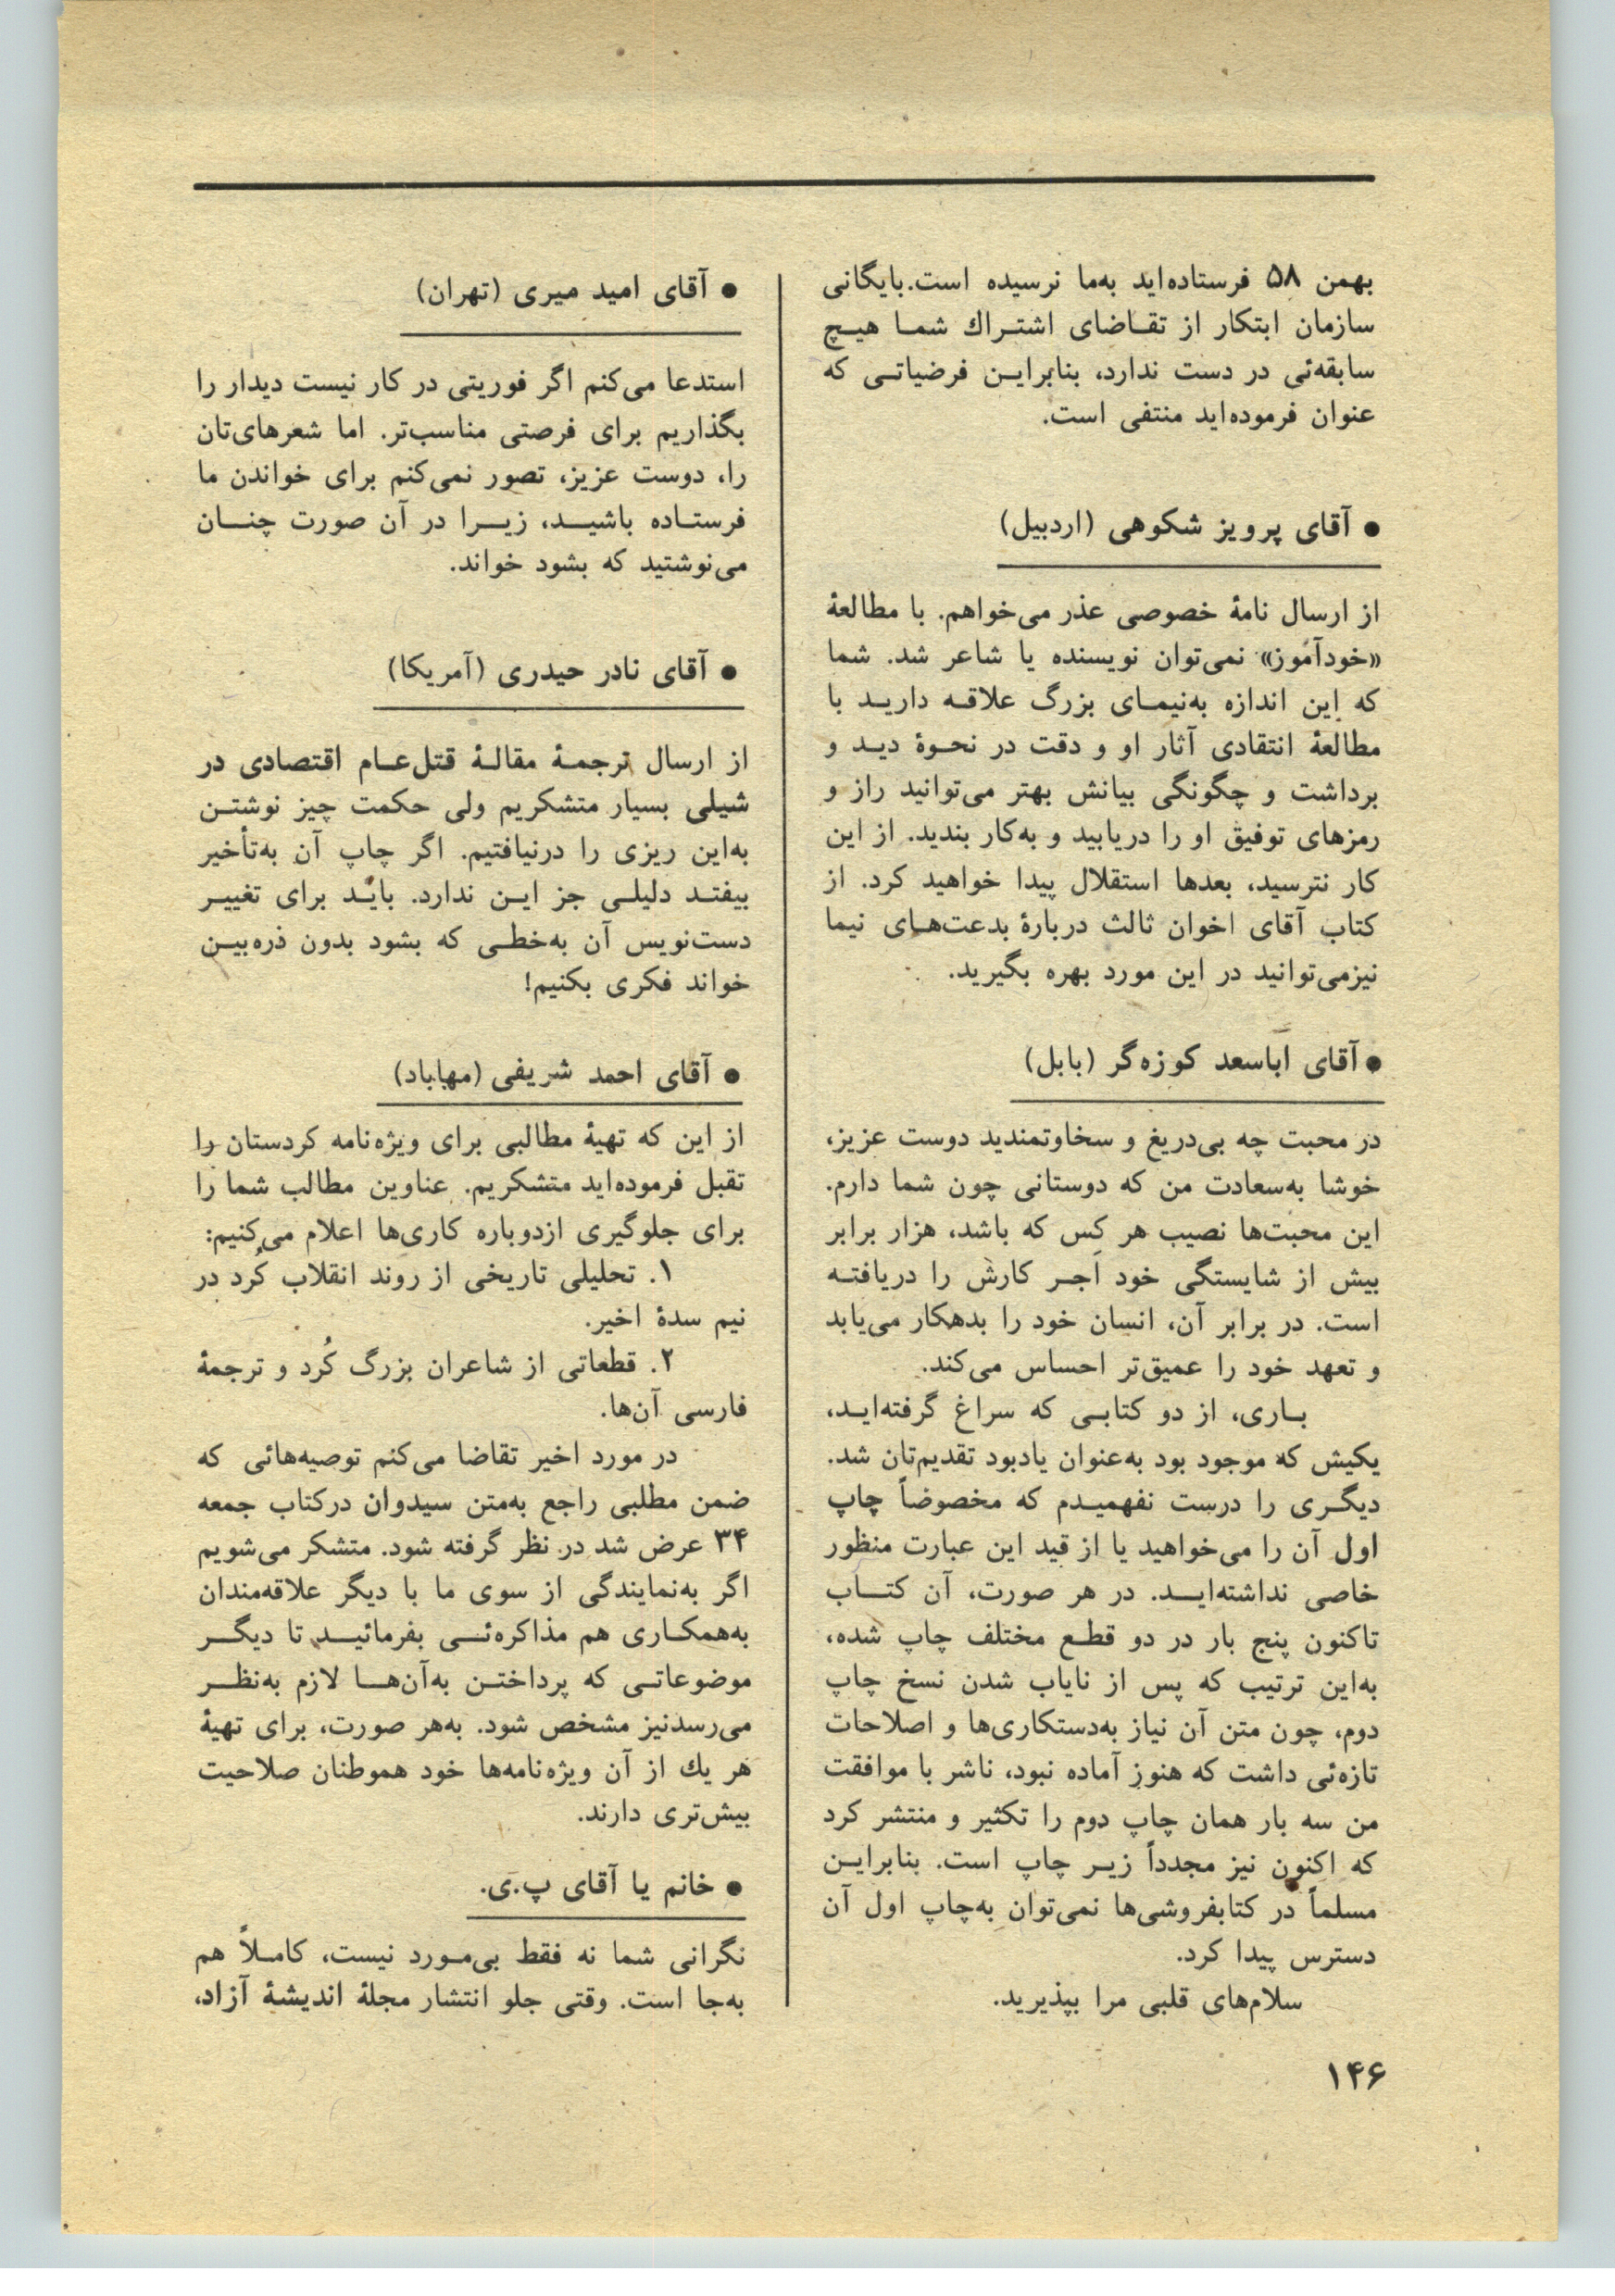 بهمن ۵۸ فرستاده‌اید به‌ما نرسیده است. بایگانی
سازمان ابتکار از تقاضای اشتراك شما هیچ
سابقه‌ئی در دست ندارد، بنابراین فرضیاتی که
عنوان فرموده‌اید منتفی است.
● آقای پرویز شکوهی (اردبیل)
از ارسال نامهٔ خصوصی عذر می‌خواهم. با مطالعهٔ
«خودآموز» نمی‌توان نویسنده یا شاعر شد. شما
که این اندازه به‌نیمای بزرگ علاقه دارید با
مطالعهٔ انتقادی آثار او و دقت در نحوهٔ دید و
برداشت و چگونگی بیانش بهتر می‌توانید راز و
رمزهای توفیق او را دریابید و به‌کار بندید. از این
کار نترسید، بعدها استقلال پیدا خواهید کرد. از
کتاب آقای اخوان ثالث دربارهٔ بدعت‌های نیما
نیزمی‌توانید در این مورد بهره بگیرید.
● آقای اباسعد کوزه‌گر (بابل)
در محبت چه بی‌دریغ و سخاوتمندید دوست عزیز،
خوشا به‌سعادت من که دوستانی چون شما دارم.
این محبت‌ها نصیب هر کس که باشد، هزار برابر
بیش از شایستگی خود اَجر کارش را دریافته
است. در برابر آن، انسان خود را بدهکار می‌یابد
و تعهد خود را عمیق‌تر احساس می‌کند.
باری، از دو کتابی که سراغ گرفته‌اید،
یکیش که موجود بود به‌عنوان یادبود تقدیم‌تان شد.
دیگری را درست نفهمیدم که مخصوضاً چاپ
اول آن را می‌خواهید یا از قید این عبارت منظور
خاصی نداشته‌اید. در هر صورت، آن کتاب
تاکنون پنج بار در دو قطع مختلف چاپ شده،
به‌این ترتیب که پس از نایاب شدن نسخ چاپ
دوم، چون متن آن نیاز به‌دستکاری‌ها و اصلاحات
تازه‌ئی داشت که هنوز آماده نبود، ناشر با موافقت
من سه بار همان چاپ دوم را تکثیر و منتشر کرد
که اکنون نیز مجدداً زیر چاپ است. بنابراین
مسلماً در کتابفروشی‌ها نمی‌توان به‌چاپ اول آن
دسترس پیدا کرد.
سلام‌های قلبی مرا بپذیرید.
● آقای امید میری (تهران)
استدعا می‌کنم اگر فوریتی در کار نیست دیدار را
بگذاریم برای فرصتی مناسب‌تر. اما شعرهای‌تان
را، دوست عزیز، تصور نمی‌کنم برای خواندن ما
فرستاده باشید، زیرا در آن صورت چنان
می‌نوشتید که بشود خواند.
● آقای نادر حیدری (آمریکا)
از ارسال ترجمهٔ مقالهٔ قتل‌عام اقتصادی در
شیلی بسیار متشکریم ولی حکمت چیز نوشتن
به‌این ریزی را درنیافتیم. اگر چاپ آن به‌تأخیر
بیفتد دلیلی جز این ندارد. باید برای تغییر
دست‌نویس آن به‌خطی که بشود بدون ذره‌بین
خواند فکری بکنیم!
● آقای احمد شریفی (مهاباد)
از این که تهیهٔ مطالبی برای ویژه‌نامه کردستان را
تقبل فرموده‌اید متشکریم. عناوین مطالب شما را
برای جلوگیری ازدوباره کاری‌ها اعلام می‌کنیم:
۱. تحلیلی تاریخی از روند انقلاب کُرد در
نیم سدهٔ اخیر.
۲. قطعاتی از شاعران بزرگ کُرد و ترجمهٔ
فارسی آن‌ها.
در مورد اخیر تقاضا می‌کنم توصیه‌هائی که
ضمن مطلبی راجع به‌متن سیدوان درکتاب جمعه
۳۴ عرض شد در نظر گرفته شود. متشکر می‌شویم
اگر به‌نمایندگی از سوی ما با دیگر علاقه‌مندان
به‌همکاری هم مذاکره‌ئی بفرمائید تا دیگر
موضوعاتی که پرداختن به‌آن‌ها لازم به‌نظر
می‌رسدنیز مشخص شود. به‌هر صورت، برای تهیهٔ
هر یك از آن ویژه‌نامه‌ها خود هموطنان صلاحیت
بیش‌تری دارند.
● خانم یا آقای پ.ی.
نگرانی شما نه فقط بی‌مورد نیست، کاملاً هم
به‌جا است. وقتی جلو انتشار مجلهٔ اندیشهٔ آزاد،
۱۴۶